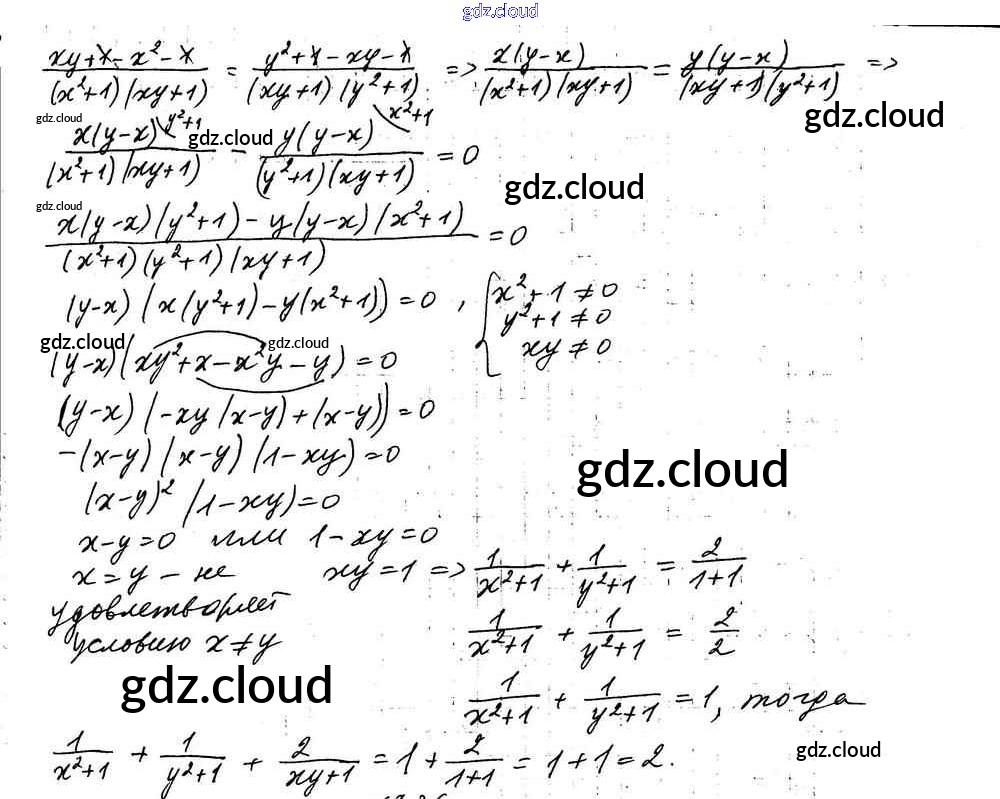 gdz.cloud
(xy+1-x²-1)/((x²+1)(xy+1)) = (y²+1-xy-1)/((xy+1)(y²+1)) => x(y-x)/((x²+1)(xy+1)) = y(y-x)/((xy+1)(y²+1)) =>
gdz.cloud
gdz.cloud
x(y-x)\y²+1/((x²+1)(xy+1)) - y(y-x)\x²+1/((y²+1)(xy+1)) = 0
gdz.cloud
gdz.cloud
gdz.cloud
(x(y-x)(y²+1)-y(y-x)(x²+1))/((x²+1)(y²+1)(xy+1)) = 0
(y-x)(x(y²+1)-y(x²+1)) = 0, { x²+1≠0
y²+1≠0
xy≠0
gdz.cloud
gdz.cloud
(y-x)(xy²+x-x²y-y) = 0
(y-x)(-xy(x-y)+(x-y)) = 0
-(x-y)(x-y)(1-xy) = 0
gdz.cloud
(x-y)²(1-xy) = 0
x-y=0 или 1-xy=0
x=y - не xy=1 => 1/(x²+1) + 1/(y²+1) = 2/(1+1)
удовлетворяет
условию x≠y 1/(x²+1) + 1/(y²+1) = 2/2
gdz.cloud
1/(x²+1) + 1/(y²+1) = 1, тогда
1/(x²+1) + 1/(y²+1) + 2/(xy+1) = 1 + 2/(1+1) = 1+1 = 2.
gdz.cloud